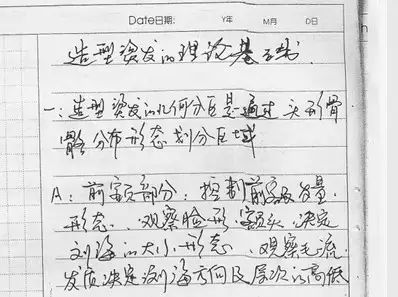 Date日期: Y年 M月 D日
造型烫发的理论基础书.
一:造型烫发的几何分区是通过头形骨
骼分布形态划分区域
A:前额部分:控制前发量,
形态.观察脸形额头.决定
刘海的大小.形态.观察毛流.
发质决定刘海方向及层次的高低